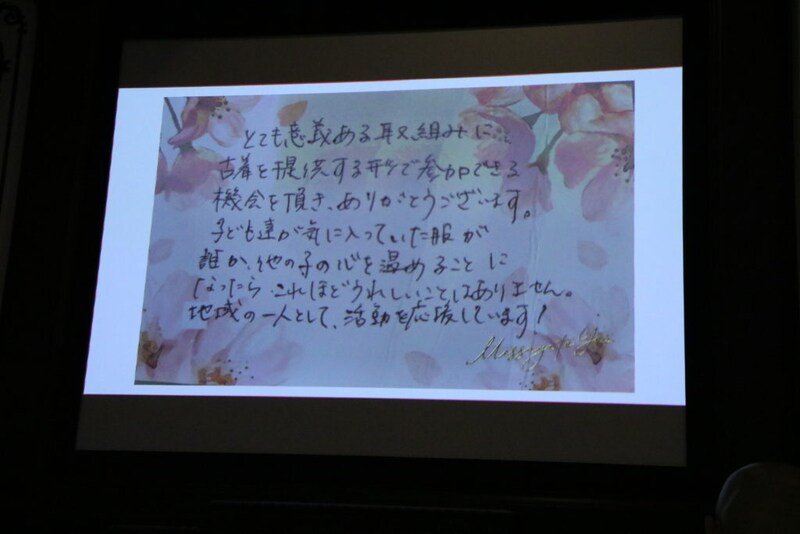 とても意義ある取組みに、
古着を提供する形で参加できる
機会を頂き、ありがとうございます。
子ども達が気に入っていた服が
誰か、他の子の心を温めることに
なったら、これほどうれしいことはありません。
地域の一人として、活動を応援しています!
Message to You